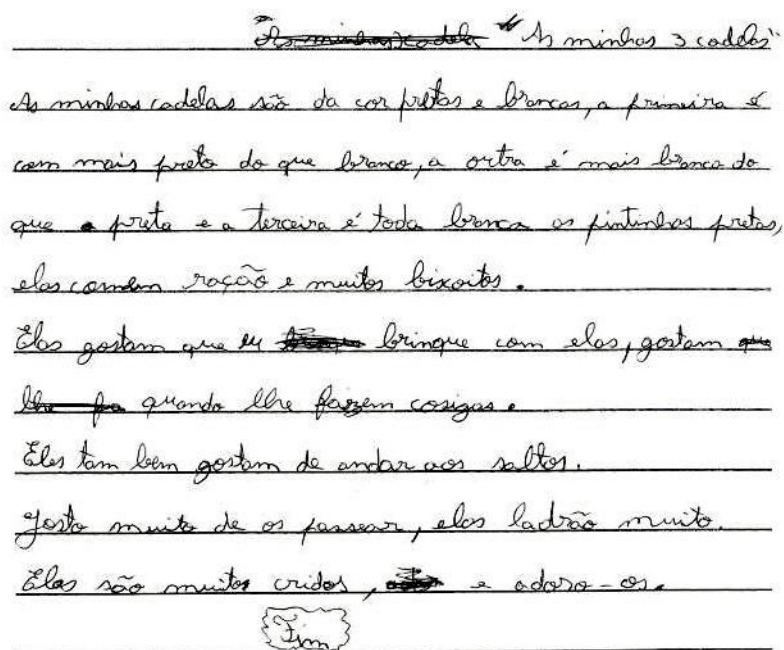 "As minhas 3 cadelas"
As minhas cadelas são da cor pretas e brancas, a primeira é
com mais preto do que branco, a ortra é mais branca do
que a preta e a terceira é toda branca os pintinhas pretas,
elas comem ração e muitos bixoitos.
Elas gostam que eu brinque com elas, gostam
quando lhe fazem cosigas.
Elas tam bem gostam de andar aos saltos.
Gosto muito de os passear, elas ladrão muito.
Elas são muitos cridos, e adoro-os.
Fim